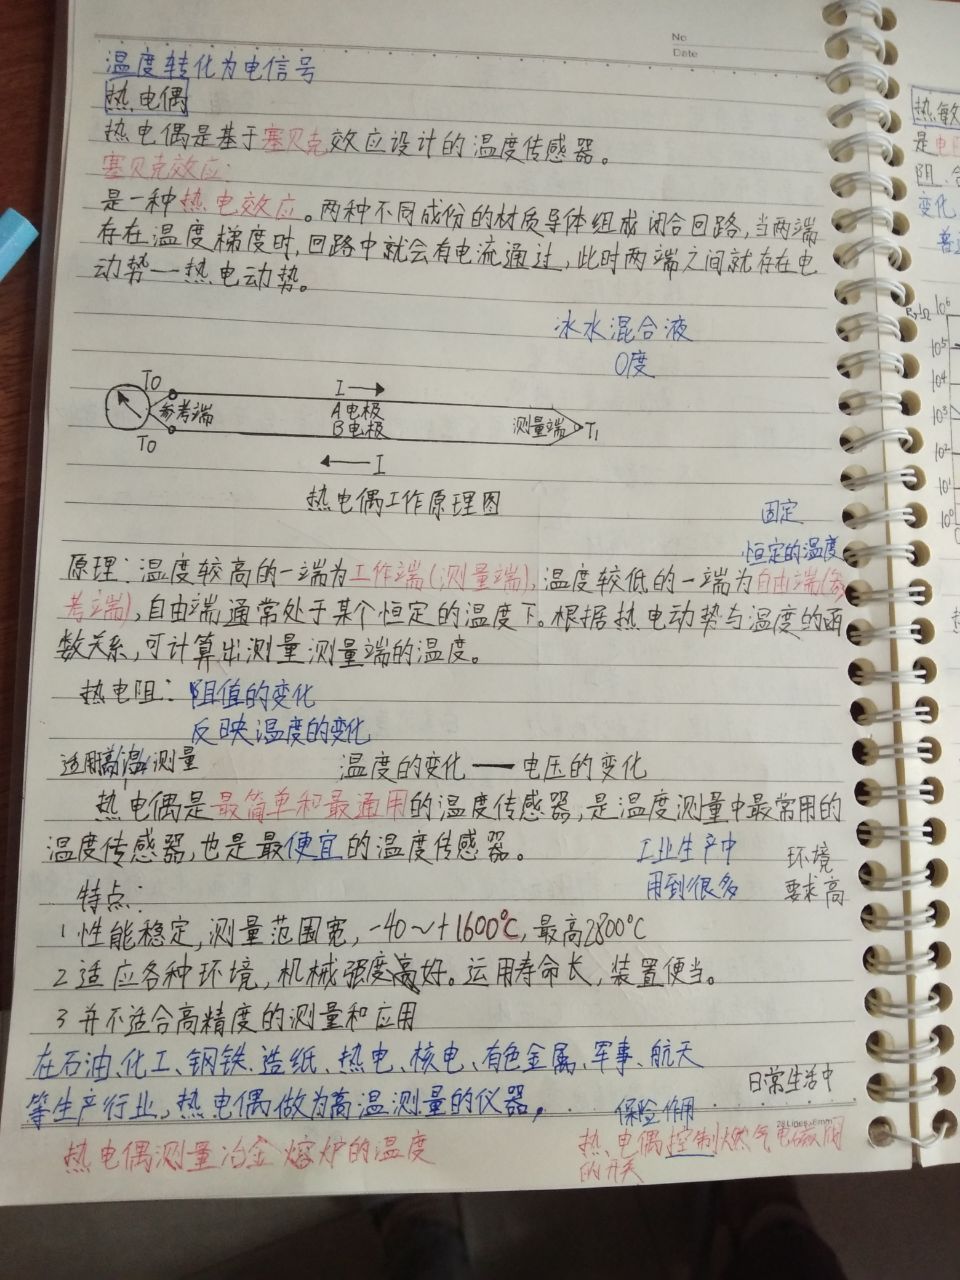 No
Date
温度转化为电信号
热电偶
热电偶是基于塞贝克效应设计的温度传感器。
塞贝克效应:
是一种热电效应。两种不同成份的材质导体组成闭合回路,当两端
存在温度梯度时,回路中就会有电流通过,此时两端之间就存在电
动势—热电动势。
冰水混合液
0度
T0
I
参考端
A电极
B电极
测量端
T1
T0
I
热电偶工作原理图
固定
恒定的温度
原理:温度较高的一端为工作端(测量端),温度较低的一端为自由端(参
考端),自由端通常处于某个恒定的温度下。根据热电动势与温度的函
数关系,可计算出测量测量端的温度。
热电阻:阻值的变化
反映温度的变化
适用高温测量
温度的变化—电压的变化
热电偶是最简单和最通用的温度传感器,是温度测量中最常用的
温度传感器,也是最便宜的温度传感器。
工业生产中
用到很多
环境
要求高
特点:
1 性能稳定,测量范围宽,-40~+1600°C,最高2800°C
2 适应各种环境,机械强度好。运用寿命长,装置便当。
3 并不适合高精度的测量和应用
在石油、化工、钢铁、造纸、热电、核电、有色金属、军事、航天
等生产行业,热电偶做为高温测量的仪器,
日常生活中
保险作用
热电偶测量冶金熔炉的温度
热电偶控制燃气电磁阀
的开关
热敏
是电阻
阻、
变化
10⁶
10⁵
10⁴
10³
10²
10¹
10⁰